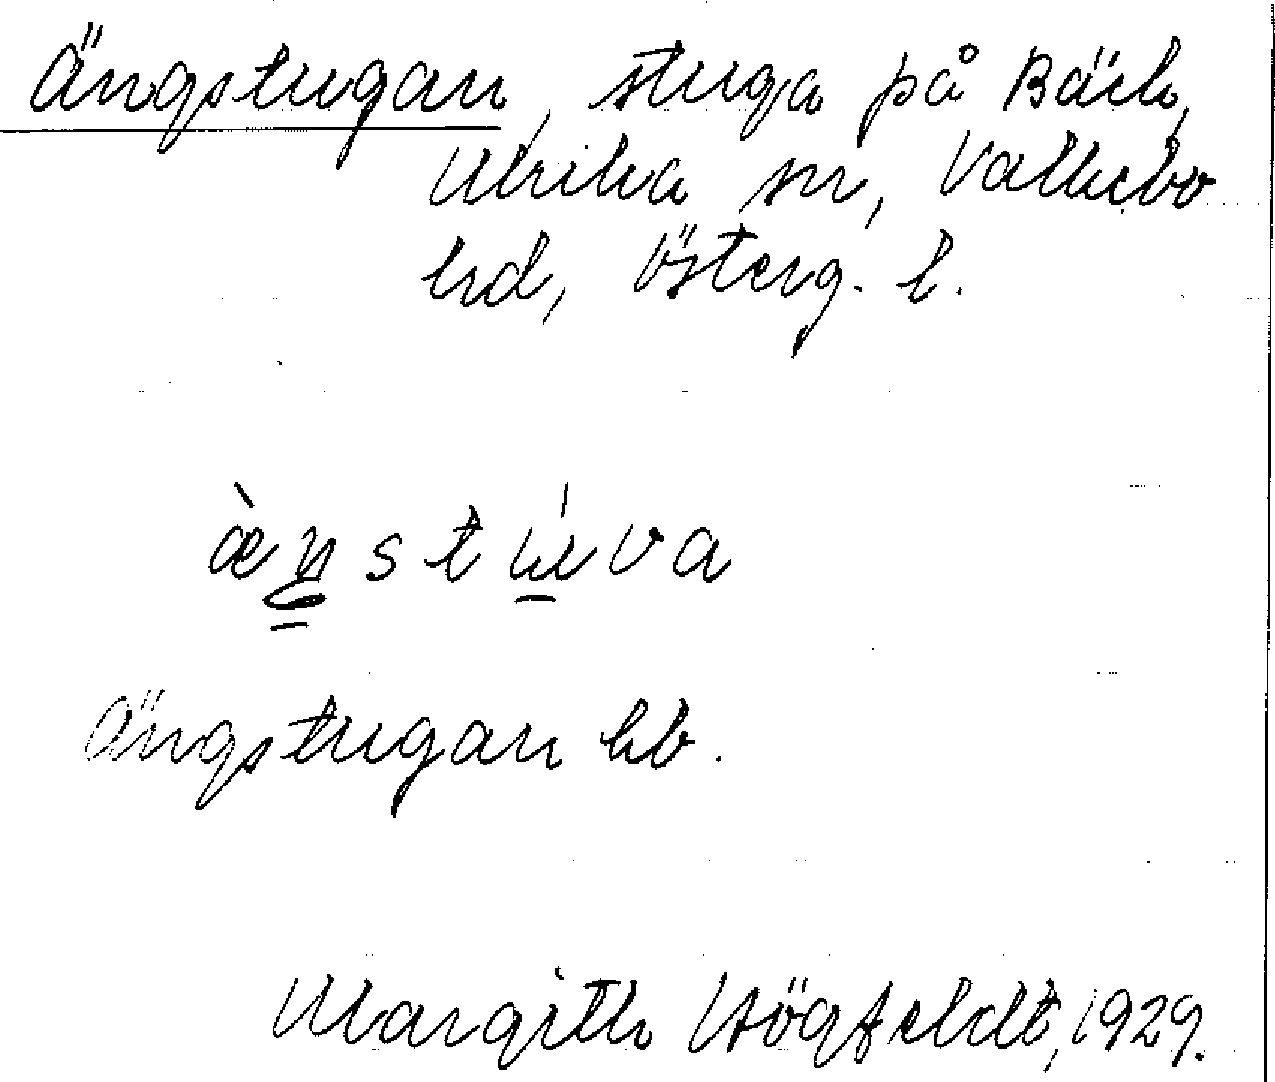 Ängstugan, stuga på Bäck,
Ulrika sn, Valkebo
hd, Österg. l.
æ̀ŋstúva
Ängstugan hb.
Margith Högfeldt, 1929.